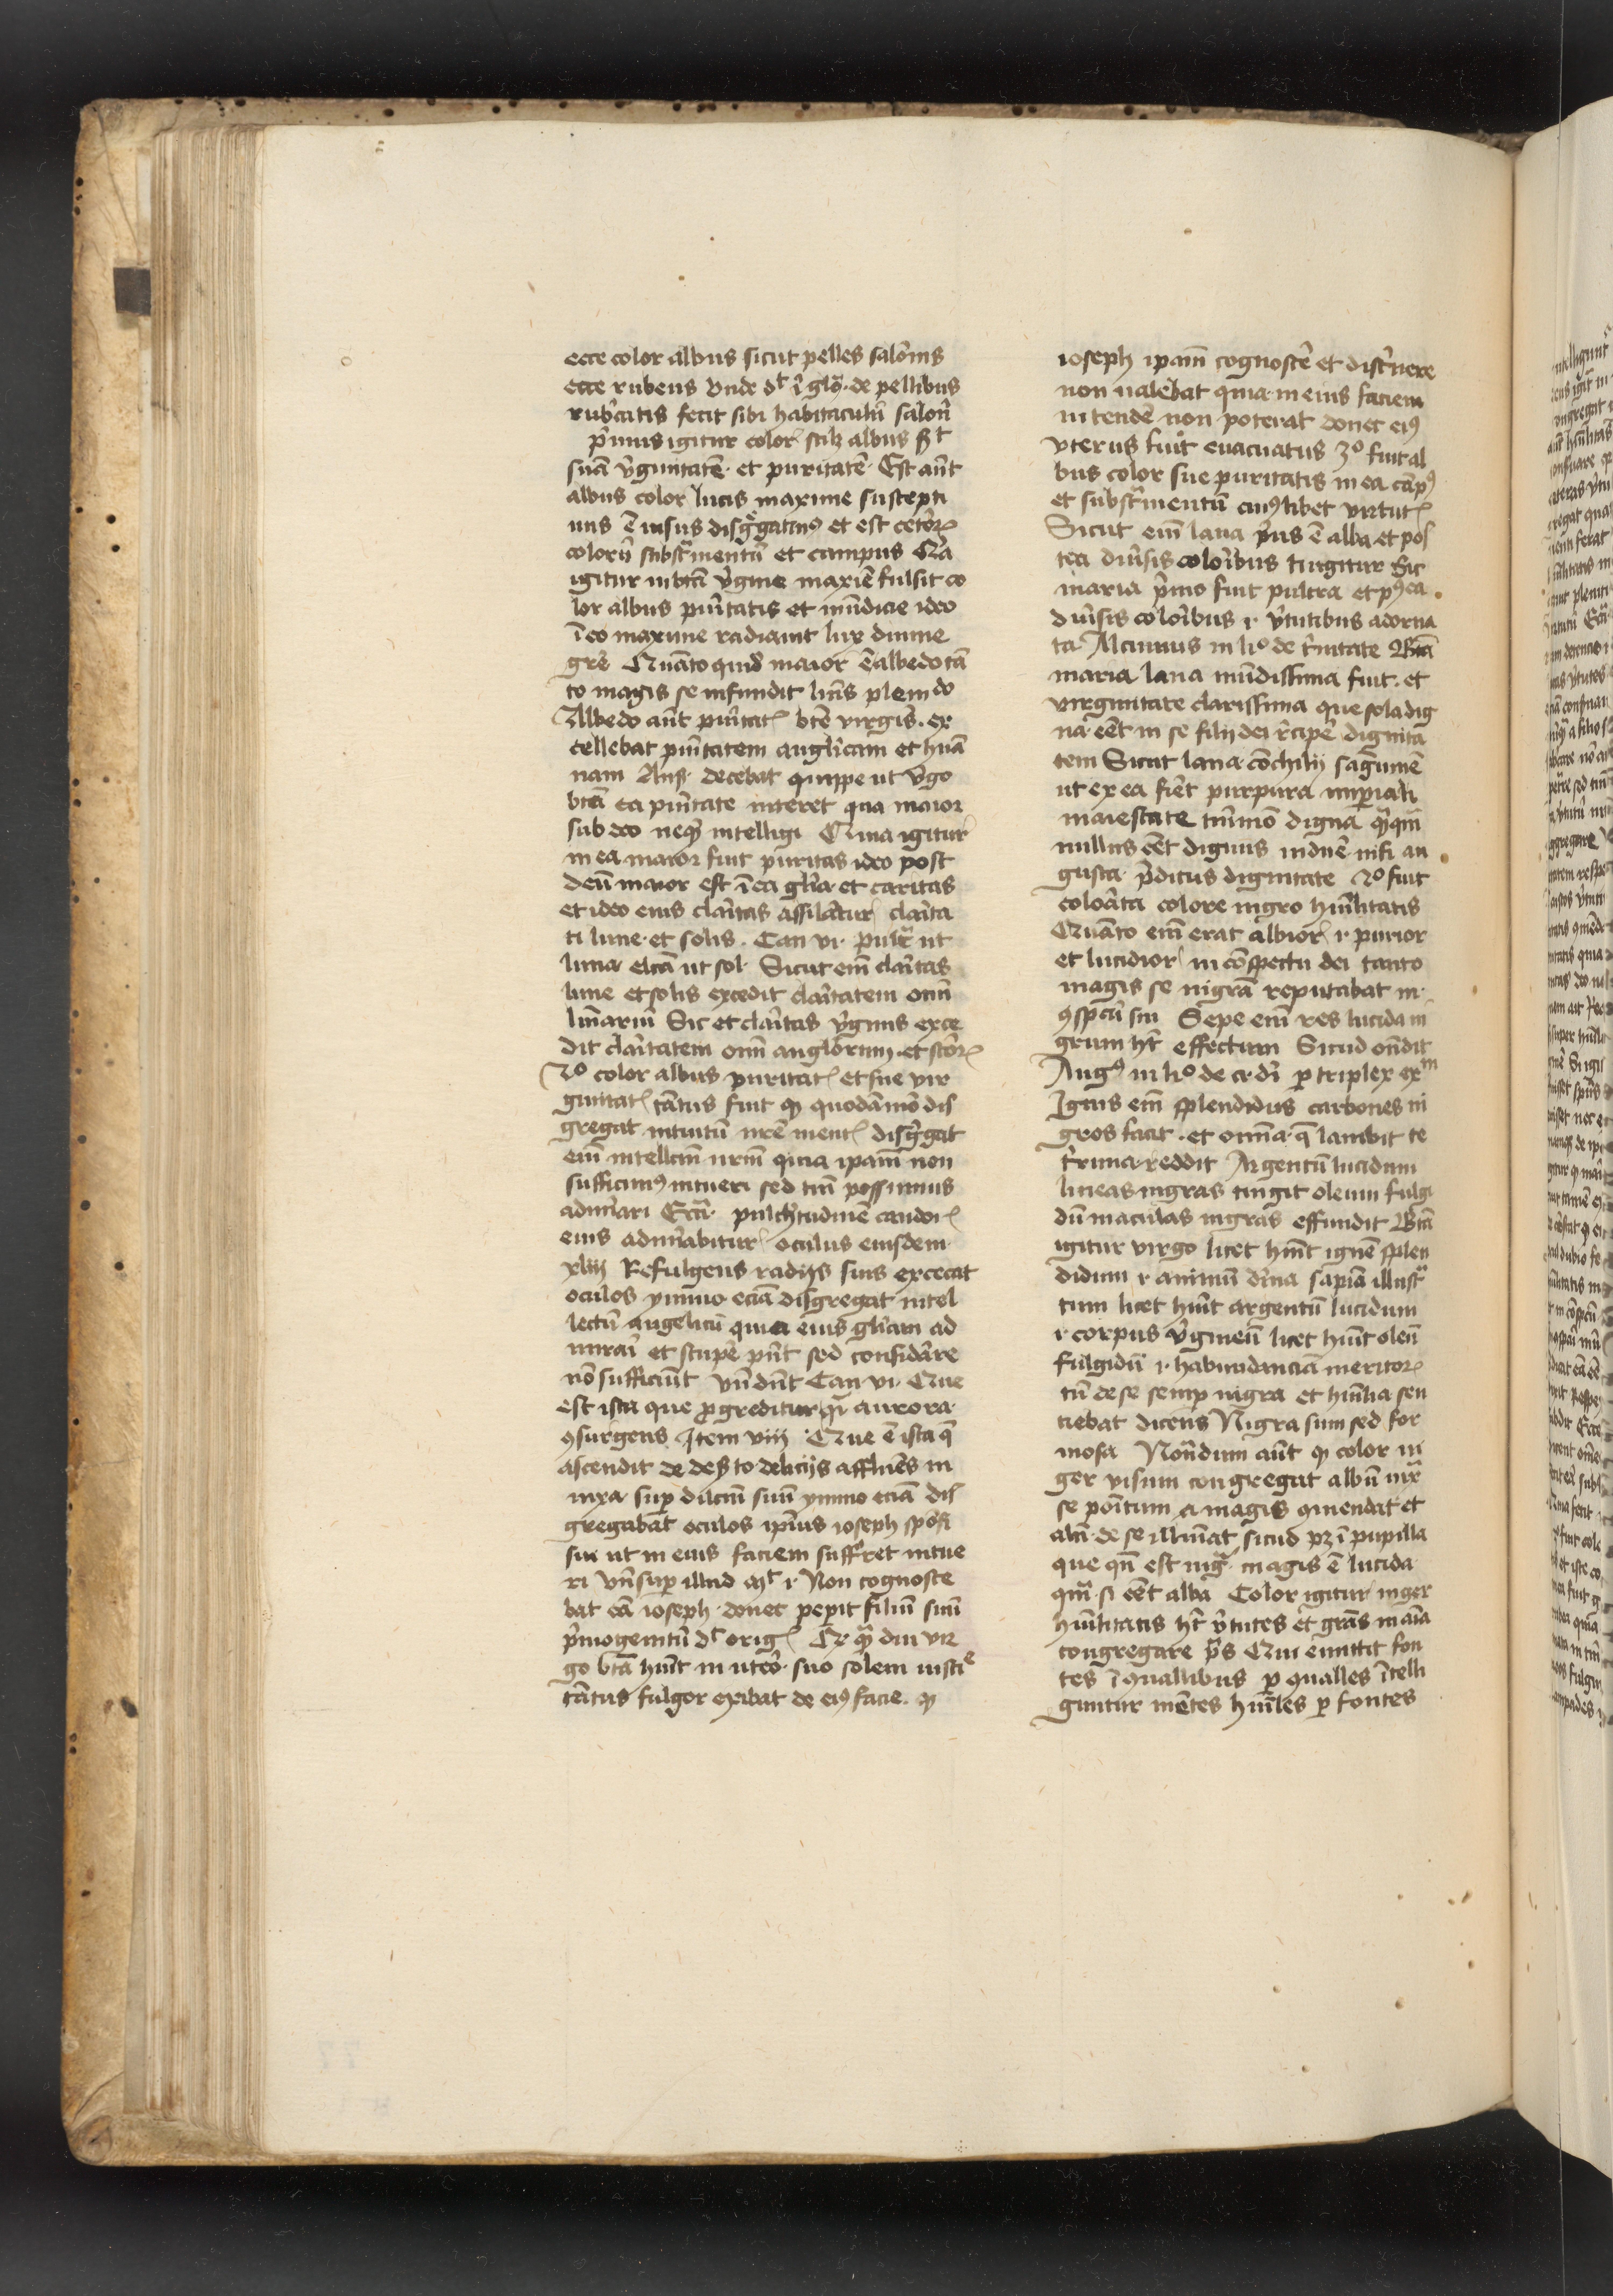 ecce color albus sicut pelles salo̅nis
ecce rubeus vnde dt ı̅ glo. de pellibus
rub̾catis fecit sibi habitaculu̅ salon̅
p̾mus igitur color scilz albus st
sua̅ v̾ginitate̅ et puritate̅ Est au̅t
albus color lucis maxime suscepti
uus e̅ uisus disg̾gatiuꝰ et est cetoꝝ
coloru̅ substramentu̅ et campus Q̾a
igitur in bta̅ v̾gine maxi̅e fulsit co
lor albus pu̾itatis et mu̅dicie ideo
ı̅ eo maxime radiauit lux diuine
gr̅e Qua̅to quid̾ maior e̅ albedo ta̅
to magis se infundit luis̅ plendo
Albedo au̅t pu̾itatꝭ bte̅ virgis̅. ex
cellebat pu̾itatem angl̾icam et hu̅a
nam Ans̾. decebat quippe ut v̾go
bta̅ ea pu̾itate niteret qua maior
sub deo neqꝫ intelligi Quia igitur
in ea maior fuit puritas ideo post
deu̅ maior est ı̅ ea gl̅ia et caritas
et ideo eius cla̾itas assilatur cla̾ita
ti lune et solis. Can vi. pulc̾ ut
luna elc̅a ut sol. Sicut em̅ cla̾itas
lune et solis excedit cla̾itatem om̅
lu̅ariu̅ Sic et cla̾itas v̾ginis exce
dit cla̾itatem om̅ anglorum. et sc̅oꝝ
2o color albus puritatꝭ et sue vir
ginitatꝭ ta̅tus fuit qꝫ quoda̅mo̅ dis
gregat intuitu̅ nr̅e mentꝭ disg̾gat
em̅ intellcm̅ nrm̅ quia ipam̅ non
sufficimꝰ intueri sed tm̅ possumus
admirari Ecc̅i. pulch̾tudine̅ candorꝭ
eius admirabitur oculus eiusdem
xliii Refulgens radijs suis excecat
oculos ymmo ecia̅ disgregat intel
lectu̅ angelicu̅ quia eius gl̾iam ad
mirari̅ et stupe̅ pn̅t sed consida̾re
no̅ sufficiu̅t vn̅ dn̅t Can vi. Que
est ista que ꝓgreditur q̾i aurora
ꝯsurgens Item viii Que e̅ ista q̅
ascendit de des̾to delicijs afflue̅s in
nixa sup̱ dilcm̅ suu̅ ymmo ecia̅ dis
gregaba̅t oculos ip̅ius ioseph spo̅si
sui ut in eius faciem suff̾ret intue
ri vn̅ sup̱ illud mt i. Non cognosce
bat ea̅ ioseph. donec pep̱it filiu̅ suu̅
p̾mogenitu̅ dt orig Qꝫ q̅ diu vir
go bta̅ hu̅it in ute̾o suo solem iustie
ta̅tus fulgor exibat de eiꝰ facie. qꝫ
ioseph ipam̅ cognosce̅ et disc̾nere
non ualebat quia in eius faciem
intende̅ non poterat donec eiꝰ
vterus fuit euacuatus 3o fuit al
bus color sue puritatis in ea ca̅pꝰ
et substramentu̅ cuiꝰlibet virtutꝭ
Sicut em̅ lana p̾us e̅ alba et pos
tea diu̾sis colo̾ibus tingitur sic
maria p̾mo fuit pulcra et pꝰ ea
diu̾sis colo̾ibus i. v̾tutibus adorna
ta Alcuinus in lio de t̾nitate Bta̅
maria lana mu̅dissima fuit. et
virginitate clarissima que sola dig
na ee̅t in se filij dei r̾cipe̅ dignita
tem Sicut lana co̅chilij sagui̅ne̅
ut ex ea fie̅t purpura imp̱iali
maiestate tm̅mo̅ digna q̅ qm̅
nullus ee̅t dignus indue̅ nisi au
gusta p̾ditus dignitate 2o fuit
colo̾ata colore nigro hu̅ilitatis
Qua̅to em̅ erat albior i. purior
et lucidior in co̅spectu dei tanto
magis se nigra̅ reputabat in
ꝯspc̅u̅ sui Sepe em̅ res lucida ni
grum ht̅ effectum Sicud on̅dit
Augꝰ in lio de ci. di̅ ꝑ triplex exm
Ignis em̅ splendidus carbones ni
gros facit. et om̅ia. q̅ lambit te
t̾rima reddit Argentu̅ lucidum
lineas nigras tingit oleum fulgi
du̅ maculas nigras effundit Bta̅
igitur virgo licet hu̅it igne̅ splen
didum i animu̅ di̅na sapia̅ illust̾
tum licet hu̅it argentu̅ lucidum
i corpus v̾gineu̅ licet hu̅it oleu̅
fulgidu̅ i. habundancia̅ meritoꝝ
tn̅ de se semp̱ nigra et hu̅ilia sen
tiebat dicens Nigra sum sed for
mosa Nota̅dum au̅t qꝫ color ni
ger visum congregat albu̅ iux̾
se po̅itum a magis ꝯmendat et
alti̅ de se illui̅at sicud pꝫ ı̅ pupilla
que qn̅ est nig̾. magis e̅ lucida
qm̅ si ee̅t alba Color igitur niger
hu̅ilitatis ht̅ v̾tutes et gra̅s in ai̅a
congregare p̾s Qui emittit fon
tes ı̅ ꝯuallibus ꝑ ꝯualles ı̅telli
guntur me̅tes hu̅iles ꝑ fontes